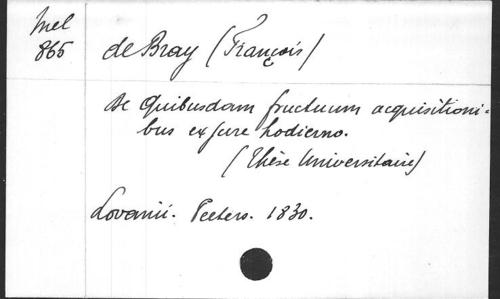 Mel
865
de Bray (François)
De Quibusdam fructuum acquisitioni-
bus ex jure hodierno.
(Thèse Universitaire)
Lovanii. Peeters. 1830.